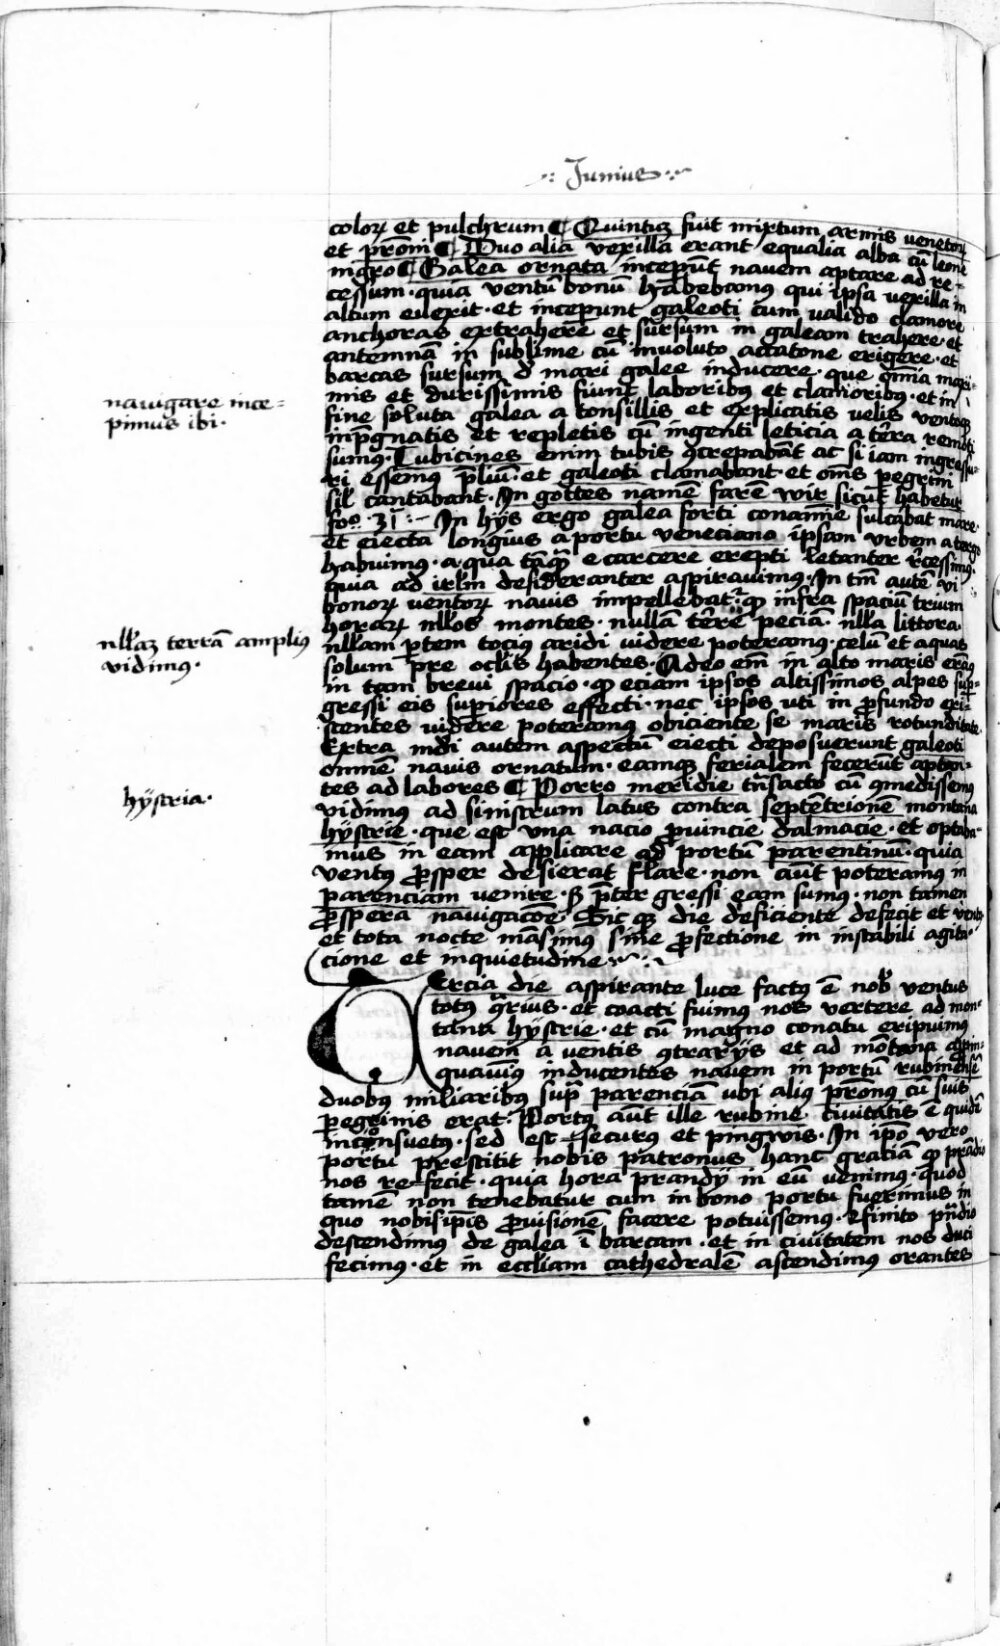 Junius
colorꝝ et pulchrum ¶ Quintuꝫ fuit mixtum armis venetorꝝ
et pr̄oni ¶ Duo alia vexilla erant equalia alba cū leone
nigro ¶ Galea ornata incepūt navem aptare ad re-
cessum · quia ventū bonū habebamꝰ qui ipsa vexilla in
altum erexit · et incepunt galeoti cum valido clamore
anchoras extrahere et sūrsum in galeam trahere · et
antemnā in sublime cū involuto accatone erigere · et
barcas sursum d mari galee inducere · que om̄ia maxi-
mis et durissimis fiunt laboribus et clamoribus · et in
fine soluta galea a tonsillis et explicatis velis ventoqꝫ
navigare ince=
pimus ibi ·
inp̄gnatis et repletis cū ingenti leticia a tēra remoti
sumꝰ · Tubicines enim tubis ꝯcrepabāt ac si iam ingressu-
ri essemꝰ p̄liū · et galeoti clamabant · et om̄s peregrini
sil̄ cantabant · In gottes namē farē wir sicut habetur
foº · 31 · In hijs ergo galea forti conamīe sulcabat mare
et eiecta longius a portu veneciano ipsam urbem a tergo
habuimꝰ · a qua tāqꝫ e carcere erepti letanter rēcessimꝰ
quia ad irl̄m desideranter aspiravimꝰ · In tm̄ autē vi
bonorꝝ ventorꝝ navis impellebatr̄ · ꝙ infra spaciū trium
horarꝝ nll̄os montes · nullā tēre peciā · nll̄a littora
nll̄am ꝑtem tocius aridi videre poteramꝰ · celū et aquas
nll̄aꝫ terrā amplius
vidimꝰ ·
solum p̄re ocl̄is habentes · Adeo em̄ in alto maris erāꝰ
in tam brevi spacio · ꝙ eciam ipsos altissimos alpes sup̄-
gressi eis sup̄iores effecti · nec ipsos uti in ꝓfundo exi-
stentes videre poteramꝰ obiciente se maris rotunditate
Extra mdi autem aspectū eiecti deposuerunt galeoti
omnē navis ornatum · eamqꝫ ferialem fecerūt aptan-
tes ad labores ¶ Porro meridie trāsacto cū ꝯmedissemꝰ
hÿstria ·
vidimus ad sinistrum latus contra septētrionē montana
hÿstrie · que est una nacio ꝓvincie dalmacie · et optaba-
mus in eam applicare ad portū parentinū · quia
ventꝰ ꝓsper desierat flare · non aūt poteramus in
parenciam venire · S p̄ter gressi eam sumꝰ · non tamen
ꝓspera navigacōe · Sic qꝫ die deficiente defecit et ventꝰ
et tota nocte māsimꝰ sine ꝓfectione in instabili agita-
cione et inquietudine
Tercia die aspirante luce factꝰ ē nob̄ ventus
totus ꝯ̄rius · et coacti fuimꝰ nos vertere ad mon-
tana hÿstrie · et cū magno conatu eripuimꝰ
navem a ventis ꝯtrarijs et ad mōtana appin-
quavimꝰ inducentes navem in portū rubinensē
duobꝰ miliaribꝰ sup̄ parenciā ubi aliꝰ pr̄onus cū suis
peregrinis erat · Portꝰ aūt ille rubine civitatis ē quidē
inconsuetꝰ · sed est securꝰ et pingwis · In ip̄o vero
portu prestitit nobis patronus hanc gratiā ꝙ prādio
nos refecit · quia hora prandij in eū venimꝰ · quod
tamē non tenebatur cum in bono portu fuerimus in
quo nobisip̄is ꝓvisionē facere potuissemꝰ · Et finito pn̄dio
descendimꝰ de galea ī barcam · et in civitatem nos duci
fecimꝰ · et in eccl̄iam cathedralē ascendimꝰ orantes